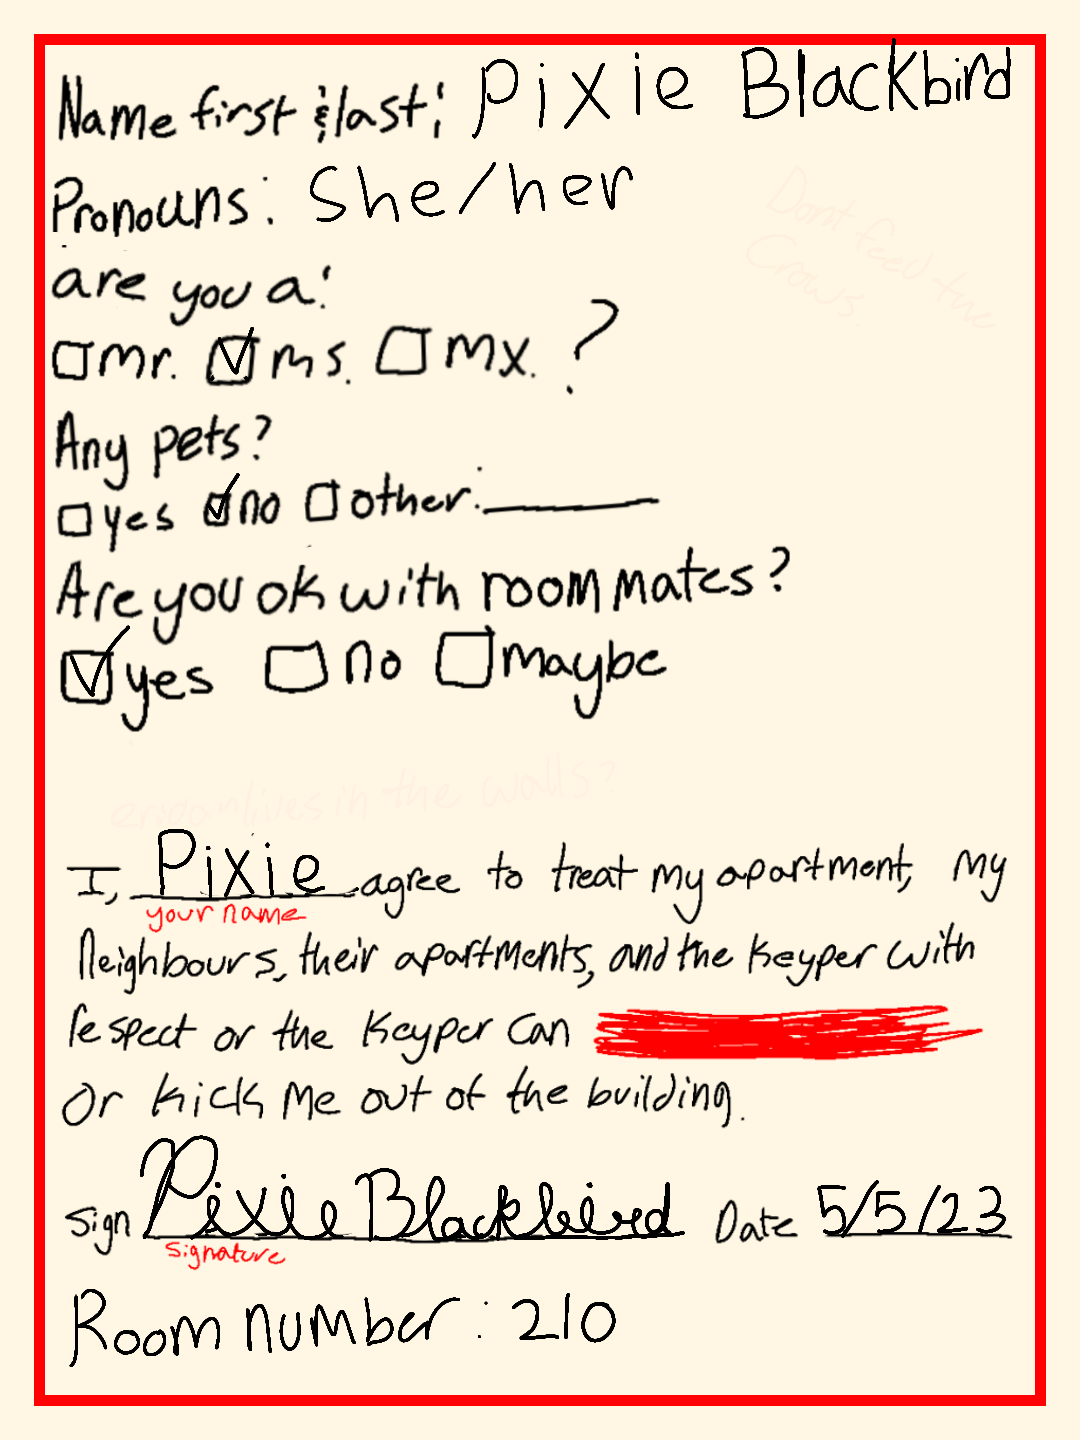 Name first & last: Pixie Blackbird
Pronouns: She/her
Dont feed the
Crows.
are you a:
mr. ms. mx. ?
Any pets?
yes no other: ______
Are you ok with roommates?
yes no maybe
lives in the walls?
I, Pixie agree to treat my apartment, my
your name
Neighbours, their apartments, and the Keyper with
respect or the Keyper can
Or kick me out of the building.
Sign Pixie Blackbird Date 5/5/23
signature
Room number: 210